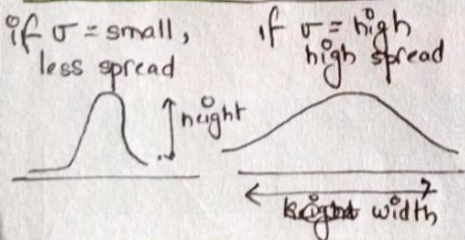 if σ = small,
less spread
if σ = high
high spread
height
width